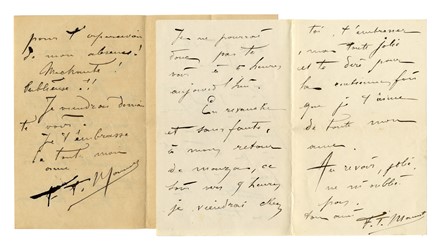 pour t'apercevoir
de mon absence!
Méchante!
oublieuse!!
Je viendrai donc
te voir.
Je t'embrasse
de tout mon
âme
Je ne pourrai
pas te
voir à 5 heures
aujourd'hui.
En revanche
et sans faute,
à mon retour
de
soir vers 9 heures
je viendrai chez
toi, t'embrasser,
ma toute jolie
et te dire pour
la fois
que je t'aime
de toute mon
âme.
Au revoir, jolie
ne m'oublie
pas.
Ton ami